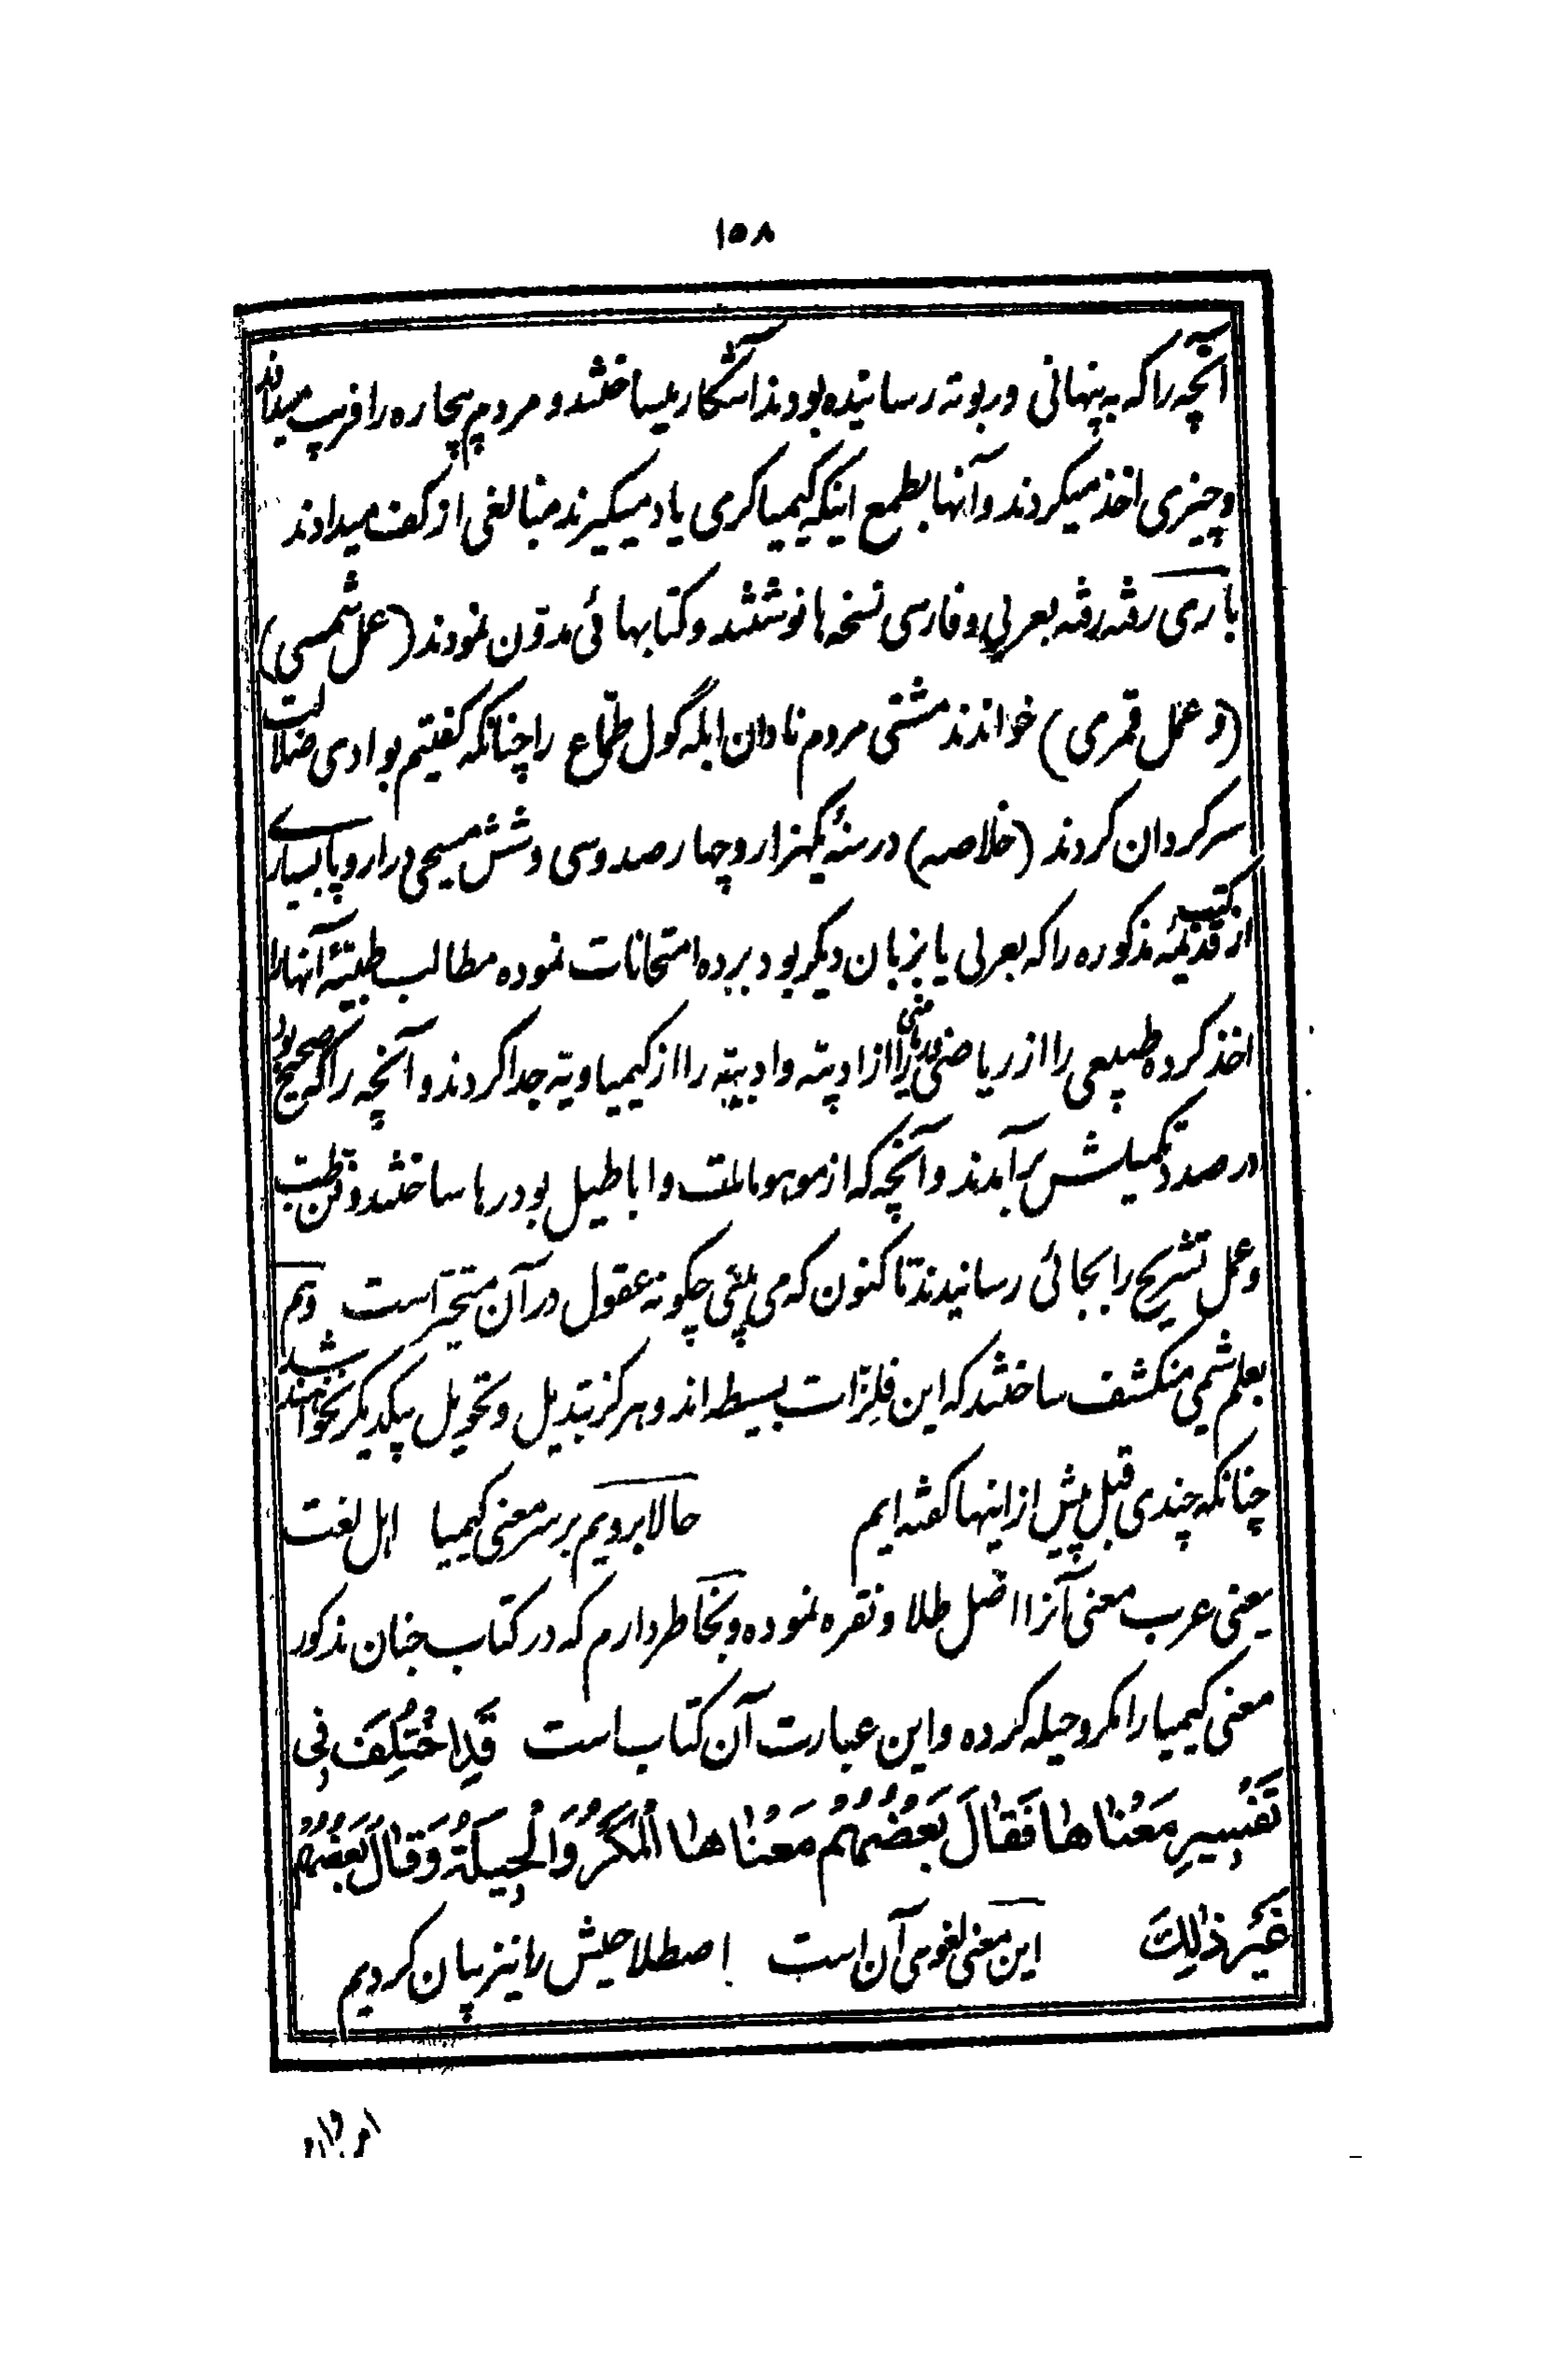 ۱۵۸
آنچه را که به پنهانی در بوته رسانیده بودند آشکار میساختند و مردم بیچاره را فریب میدادند
و چیزی اخذ میکردند و آنها بطمع اینکه کیمیاکری یاد میکیرند مبالغی از کف میدادند
باری رفته رفته بعربی و فارسی نسخه ها نوشتند و کتابهائی مدوّن نمودند (عمل شمسی)
(و عمل قمری) خواندند مشتی مردم نادان ابله گول طمّاع را چنانکه کفتیم بوادی ضلالت
سرکردان کردند (خلاصه) در سنهٔ یکهزار و چهارصد و سی و شش مسیحی در اروپا بسیاری
از کتب قدیمهٔ مذکوره را که بعربی یا بزبان دیکر بود برده امتحانات نموده مطالب طبیّهٔ آنها را
اخذ کرده طبیعی را از ریاضی را از ادبیّه و ادبیّه را از کیمیاویّه جدا کردند و آنچه را که صحیح بود
در صدد تکمیلش برآمدند و آنچه که از موهومات و اباطیل بود رها ساختند و فن طبّ
و عمل تشریح را بجائی رسانیدند تا کنون که می بینی چکونه عقول در آن متحیّر است و هم
بعلم شمی منکشف ساختند که این فلزّات بسیطه اند و هرکز تبدیل و تحویل بیکدیکر نخواهند شد
چنانکه چندی قبل پیش از اینها کفته ایم حالا برویم بر سر معنی کیمیا اهل لغت
یعنی عرب معنی آنرا اصل طلا و نقره نموده و بخاطر دارم که در کتاب جنان مذکور
معنی کیمیا را مکر و حیله کرده و این عبارت آن کتاب است قَدِ اخْتُلِفَ فِی
تَفْسِیرِ مَعْناها فَقالَ بَعْضُهُمْ مَعْناها الْمَکْرُ وَ الْحِیلَةُ وَ قالَ بَعْضُهُمْ
غَیْرَ ذٰلِکَ این معنی لغوی آن است اصطلاحیش را نیز بیان کردیم